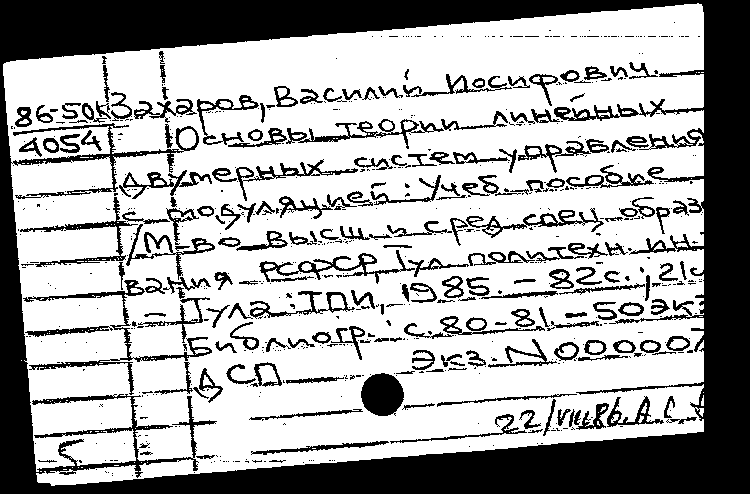 86-50к Захаров, Василий Иосифович.
4054 Основы теории линейных
двумерных систем управления
с модуляцией: Учеб. пособие
/М-во высш. и сред. спец. образо
вания РСФСР, Тул. политехн. ин-т.
– Тула: ТПИ, 1985. – 82с.; 21с
Библиогр.: с. 80-81. – 50экз
ДСП Экз. N000007
22/VIII86. А.С.
5